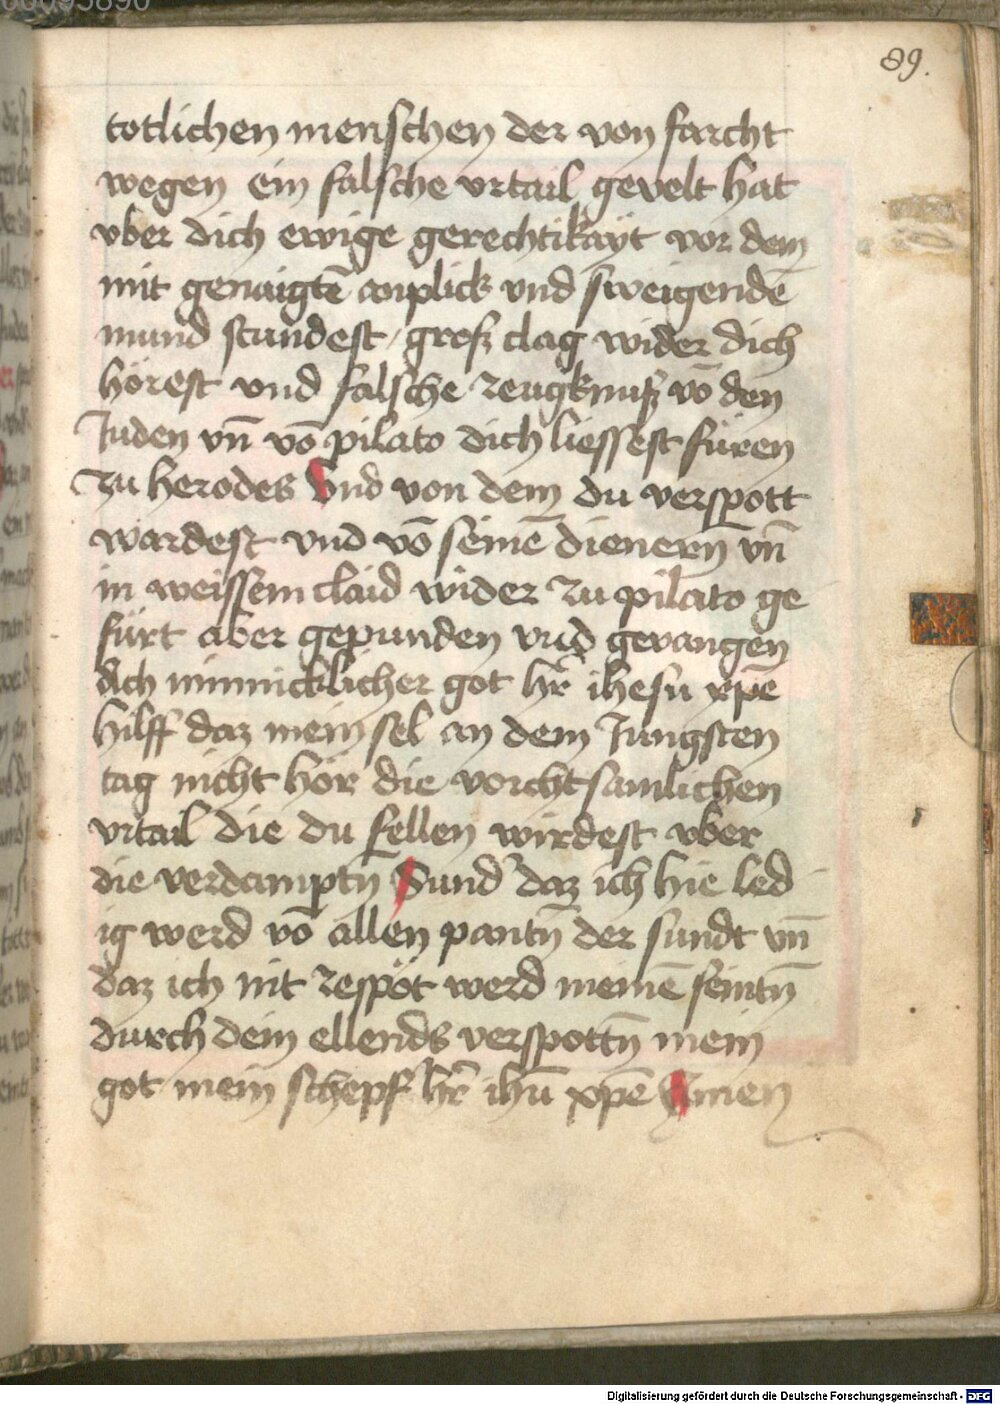 89.
totlichen menschen der von farcht
wegen ein falsche vrtail gevelt hat
vber dich ewige gerechtikayt vor dem
mit genaigtē anplick vnd sweigendē
mund stundest / grosz clag wider dich
hörest vnd falsche zeugknusz vō den
Juden vn̄ vō pilato dich liessest füren
zu herodes Vnd von dem du verspott
wardest vnd vō seinē dienern vn̄
in weissem claid wider zu pilato ge
fürt aber gepunden vnd gevangen
Ach minnicklicher got hr̄ ihesu xp̄e
hilff daz mein sel an dem Jungsten
tag nicht hör die vorchtsamlichen
vrtail die du fellen wirdest vber
die verdamptn̄ Sund' daz ich hie led
ig werd vō allen pantn̄ der sundt vn̄
daz ich nit zespöt werd meinē feintn̄
durch dein ellends verspottn̄ mein
got mein schepf' hr̄ ihū xp̄e Amen
Digitalisierung gefördert durch die Deutsche Forschungsgemeinschaft - DFG